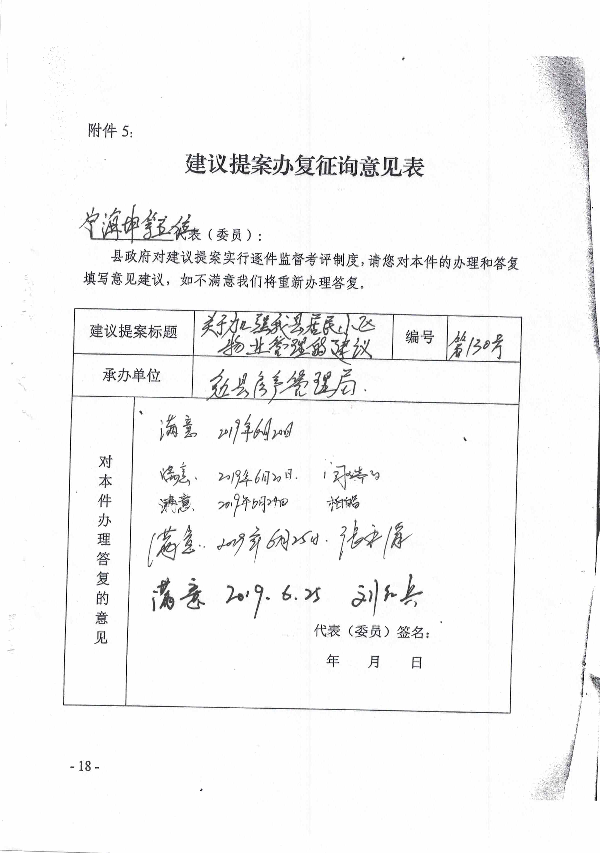 附件 5:
建议提案办复征询意见表
宁海坤等五位代表（委员）:
县政府对建议提案实行逐件监督考评制度,请您对本件的办理和答复
填写意见建议，如不满意我们将重新办理答复。
建议提案标题
关于加强我县居民小区
物业管理的建议
编号
第130号
承办单位
勉县房产管理局.
对本件办理答复的意见
满意 2019年6月20日
满意. 2019年6月20日.
满意. 2019年6月24日
满意. 2019年6月25日. 张永海
满意 2019.6.25 刘和兵
代表（委员）签名:
年 月 日
- 18 -